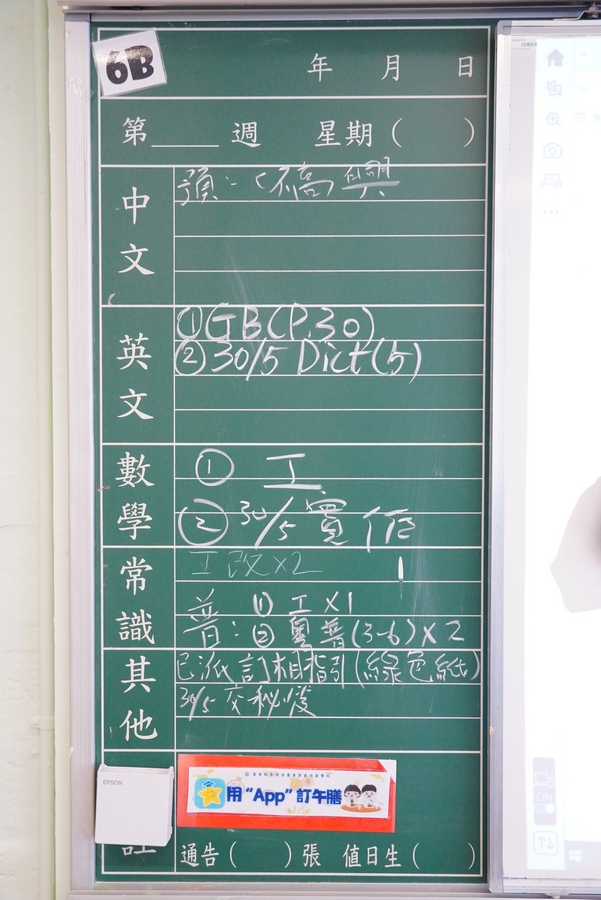 6B
年 月 日
第____週 星期( )
中文
預:-〈不高興
英文
①GB(P.30)
②30/5 Dict(5)
數學
① 工
② 30/5 買作
常識
工改×2
普: ① 工×1
② 粵普(3-6)×2
其他
已派訂相指引(綠色紙)
30/5 交
EPSON
用“App”訂午膳
註
通告( )張 值日生( )